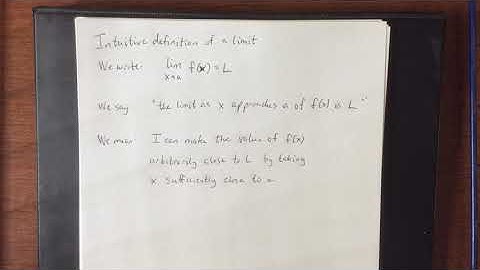 Intuitive definition of a limit
We write: lim f(x) = L
x→a
We say "the limit as x approaches a of f(x) is L"
We mean I can make the value of f(x)
arbitrarily close to L by taking
x sufficiently close to a